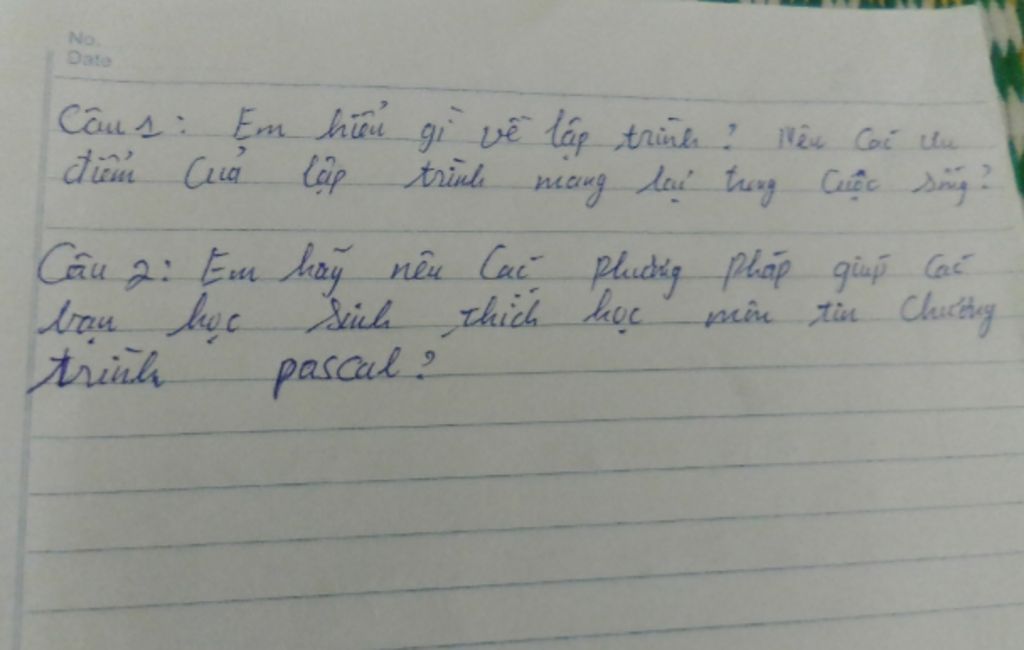 No.
Date
Câu 1: Em hiểu gì về lập trình? Nêu các ưu
điểm của lập trình mang lại trong cuộc sống?
Câu 2: Em hãy nêu các phương pháp giúp các
bạn học sinh thích học môn tin chương
trình pascal?